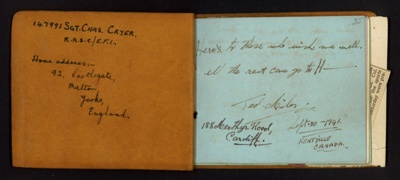 147991 SGT. CHAS. CRYER.
R.A.S.C./E.F.I.
Home address:-
92, Castlegate,
Malton,
Yorks,
England.
Here's to those who wish us well.
all the rest can go to H—
Ted
188 Merthyr Road,
Cardiff.
Sept-30-1941.
KENTVILLE
CANADA.